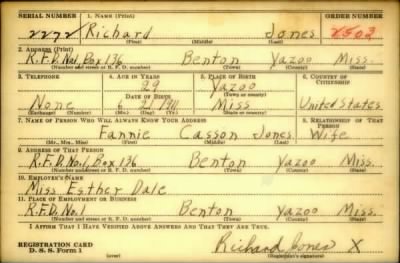 SERIAL NUMBER 1. NAME (Print) ORDER NUMBER
2272 Richard Jones 2502
(First) (Middle) (Last)
2. ADDRESS (Print)
R.F.D. No1, Box 136 Benton Yazoo Miss.
(Number and street or R. F. D. number) (Town) (County) (State)
3. TELEPHONE 4. AGE IN YEARS 5. PLACE OF BIRTH 6. COUNTRY OF CITIZENSHIP
29 Yazoo
DATE OF BIRTH (Town or county)
None 6 21 1911 Miss United States
(Exchange) (No.) (Mo.) (Day) (Yr.) (State or country)
7. NAME OF PERSON WHO WILL ALWAYS KNOW YOUR ADDRESS 8. RELATIONSHIP OF THAT PERSON
Fannie Casson Jones Wife
(Mr., Mrs., Miss) (First) (Middle) (Last)
9. ADDRESS OF THAT PERSON
R.F.D. No.1, Box 136 Benton Yazoo Miss.
(Number and street or R. F. D. number) (Town) (County) (State)
10. EMPLOYER'S NAME
Miss Esther Dale
11. PLACE OF EMPLOYMENT OR BUSINESS
R.F.D. No.1 Benton Yazoo Miss.
(Number and street or R. F. D. number) (Town) (County) (State)
I AFFIRM THAT I HAVE VERIFIED ABOVE ANSWERS AND THAT THEY ARE TRUE.
REGISTRATION CARD
D. S. S. Form 1 (over)
Richard Jones X
(Registrant's signature)